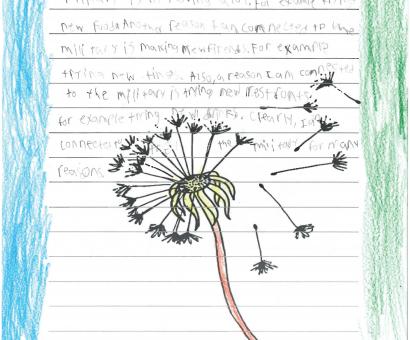 military is moving a lot. For example trying
new foods Another reason I am connected to the
military is making new firends. For example
trying new tings. Also, a reason I am connected
to the military is trying new restronts.
for example trying new drinks. Clearly, I am
connected the military for many
reasons.